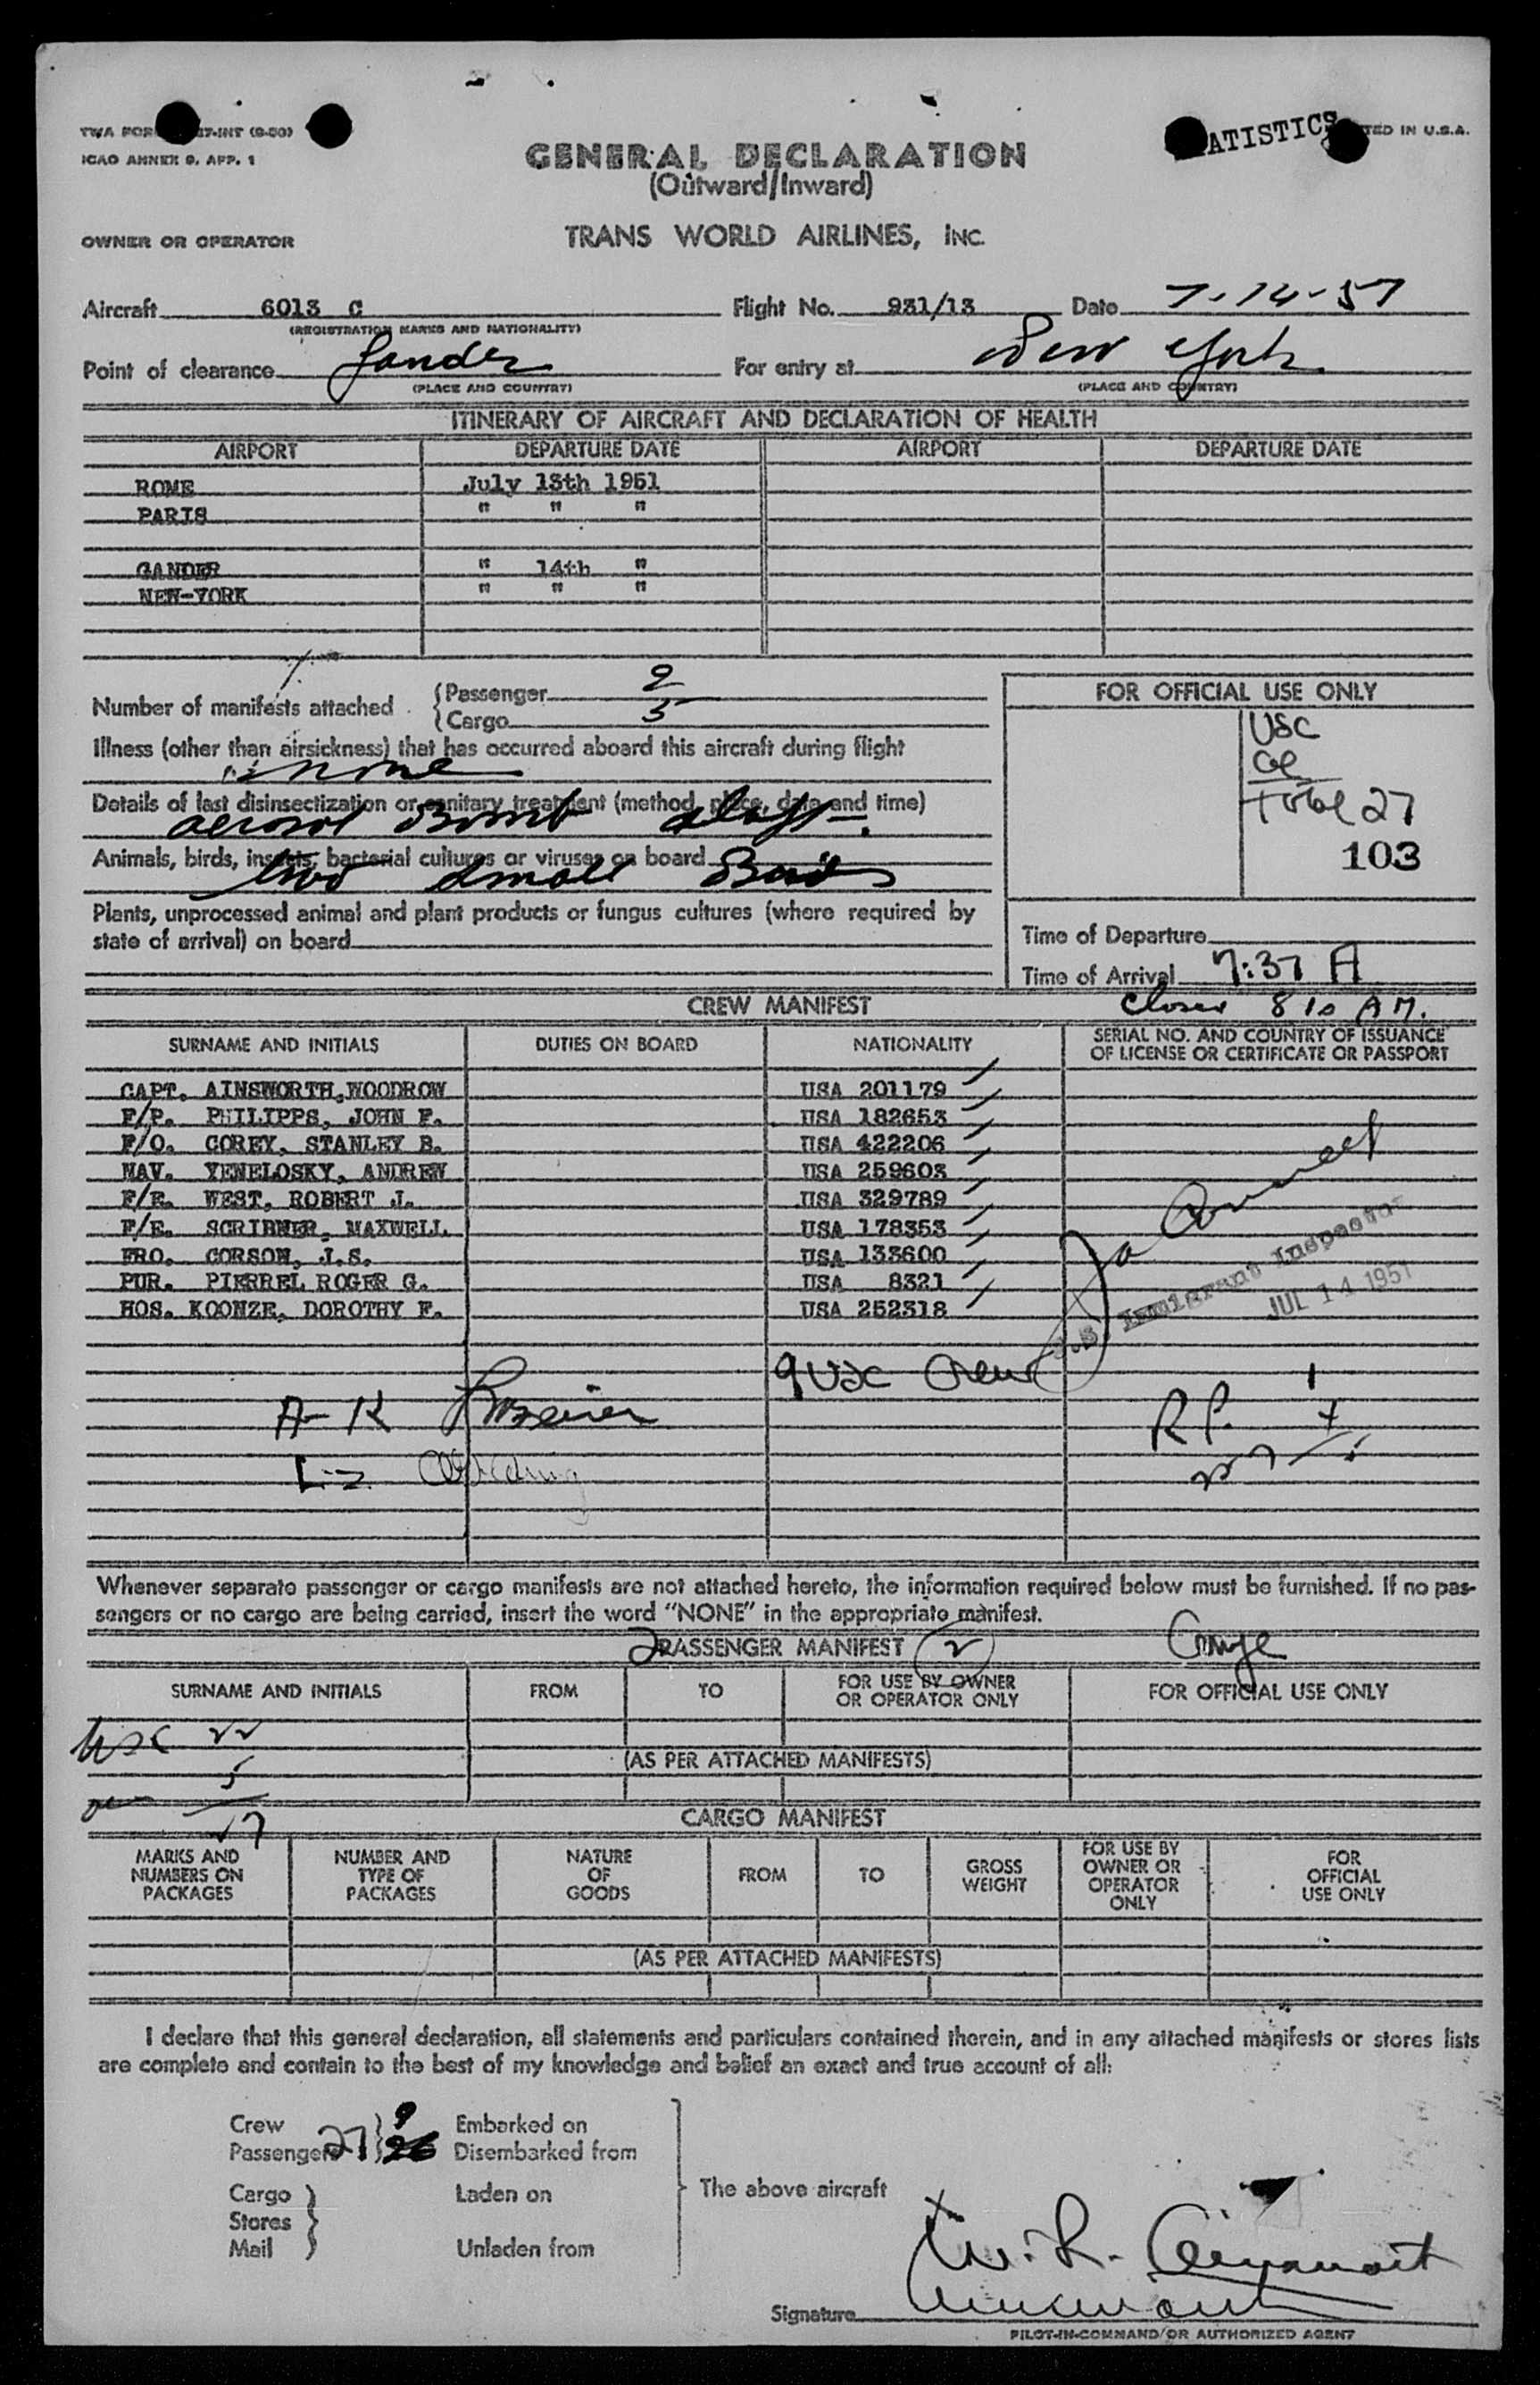 TWA FOR 7-INT (9-50)
ICAO ANNEX 9, APP. 1
ATISTICS TED IN U.S.A.
GENERAL DECLARATION
(Outward/Inward)
OWNER OR OPERATOR TRANS WORLD AIRLINES, INC.
Aircraft 6013 C Flight No. 931/13 Date 7-14-51
(REGISTRATION MARKS AND NATIONALITY)
Point of clearance Gander For entry at New York
(PLACE AND COUNTRY) (PLACE AND COUNTRY)
ITINERARY OF AIRCRAFT AND DECLARATION OF HEALTH
AIRPORT DEPARTURE DATE AIRPORT DEPARTURE DATE
ROME July 13th 1951
PARIS " " "
GANDER " 14th "
NEW-YORK " " "
Number of manifests attached { Passenger 2
{ Cargo 5
Illness (other than airsickness) that has occurred aboard this aircraft during flight
none
Details of last disinsectization or sanitary treatment (method, place, date and time)
aerosol Bomb
Animals, birds, insects, bacterial cultures or viruses on board
two small Birds
Plants, unprocessed animal and plant products or fungus cultures (where required by
state of arrival) on board
FOR OFFICIAL USE ONLY
USC
Total 27
103
Time of Departure
Time of Arrival 7:37 A
Closed 8 10 AM.
CREW MANIFEST
SURNAME AND INITIALS DUTIES ON BOARD NATIONALITY SERIAL NO. AND COUNTRY OF ISSUANCE
OF LICENSE OR CERTIFICATE OR PASSPORT
CAPT. AINSWORTH,WOODROW USA 201179
F/P. PHILIPPS, JOHN F. USA 182653
F/O. COREY, STANLEY B. USA 422206
NAV. YENELOSKY, ANDREW USA 259603
F/E. WEST, ROBERT J. USA 329789
F/E. SCRIBNER, MAXWELL USA 178353
FRO. CORSON, J.S. USA 133600
PUR. PIERREL ROGER G. USA 8321
HOS. KOONZE, DOROTHY F. USA 252318
U.S. Immigrant Inspector
JUL 14 1951
9 USC Crew
A-K
L-Z
R.P.
Whenever separate passenger or cargo manifests are not attached hereto, the information required below must be furnished. If no pas-
sengers or no cargo are being carried, insert the word "NONE" in the appropriate manifest.
2 PASSENGER MANIFEST
SURNAME AND INITIALS FROM TO FOR USE BY OWNER
OR OPERATOR ONLY FOR OFFICIAL USE ONLY
USC 22
5
27
(AS PER ATTACHED MANIFESTS)
CARGO MANIFEST
MARKS AND
NUMBERS ON
PACKAGES
NUMBER AND
TYPE OF
PACKAGES
NATURE
OF
GOODS
FROM
TO
GROSS
WEIGHT
FOR USE BY
OWNER OR
OPERATOR
ONLY
FOR
OFFICIAL
USE ONLY
(AS PER ATTACHED MANIFESTS)
I declare that this general declaration, all statements and particulars contained therein, and in any attached manifests or stores lists
are complete and contain to the best of my knowledge and belief an exact and true account of all:
Crew 9 Embarked on
Passengers 27 26 Disembarked from
Cargo Laden on
Stores
Mail Unladen from
The above aircraft
Signature
PILOT-IN-COMMAND/OR AUTHORIZED AGENT